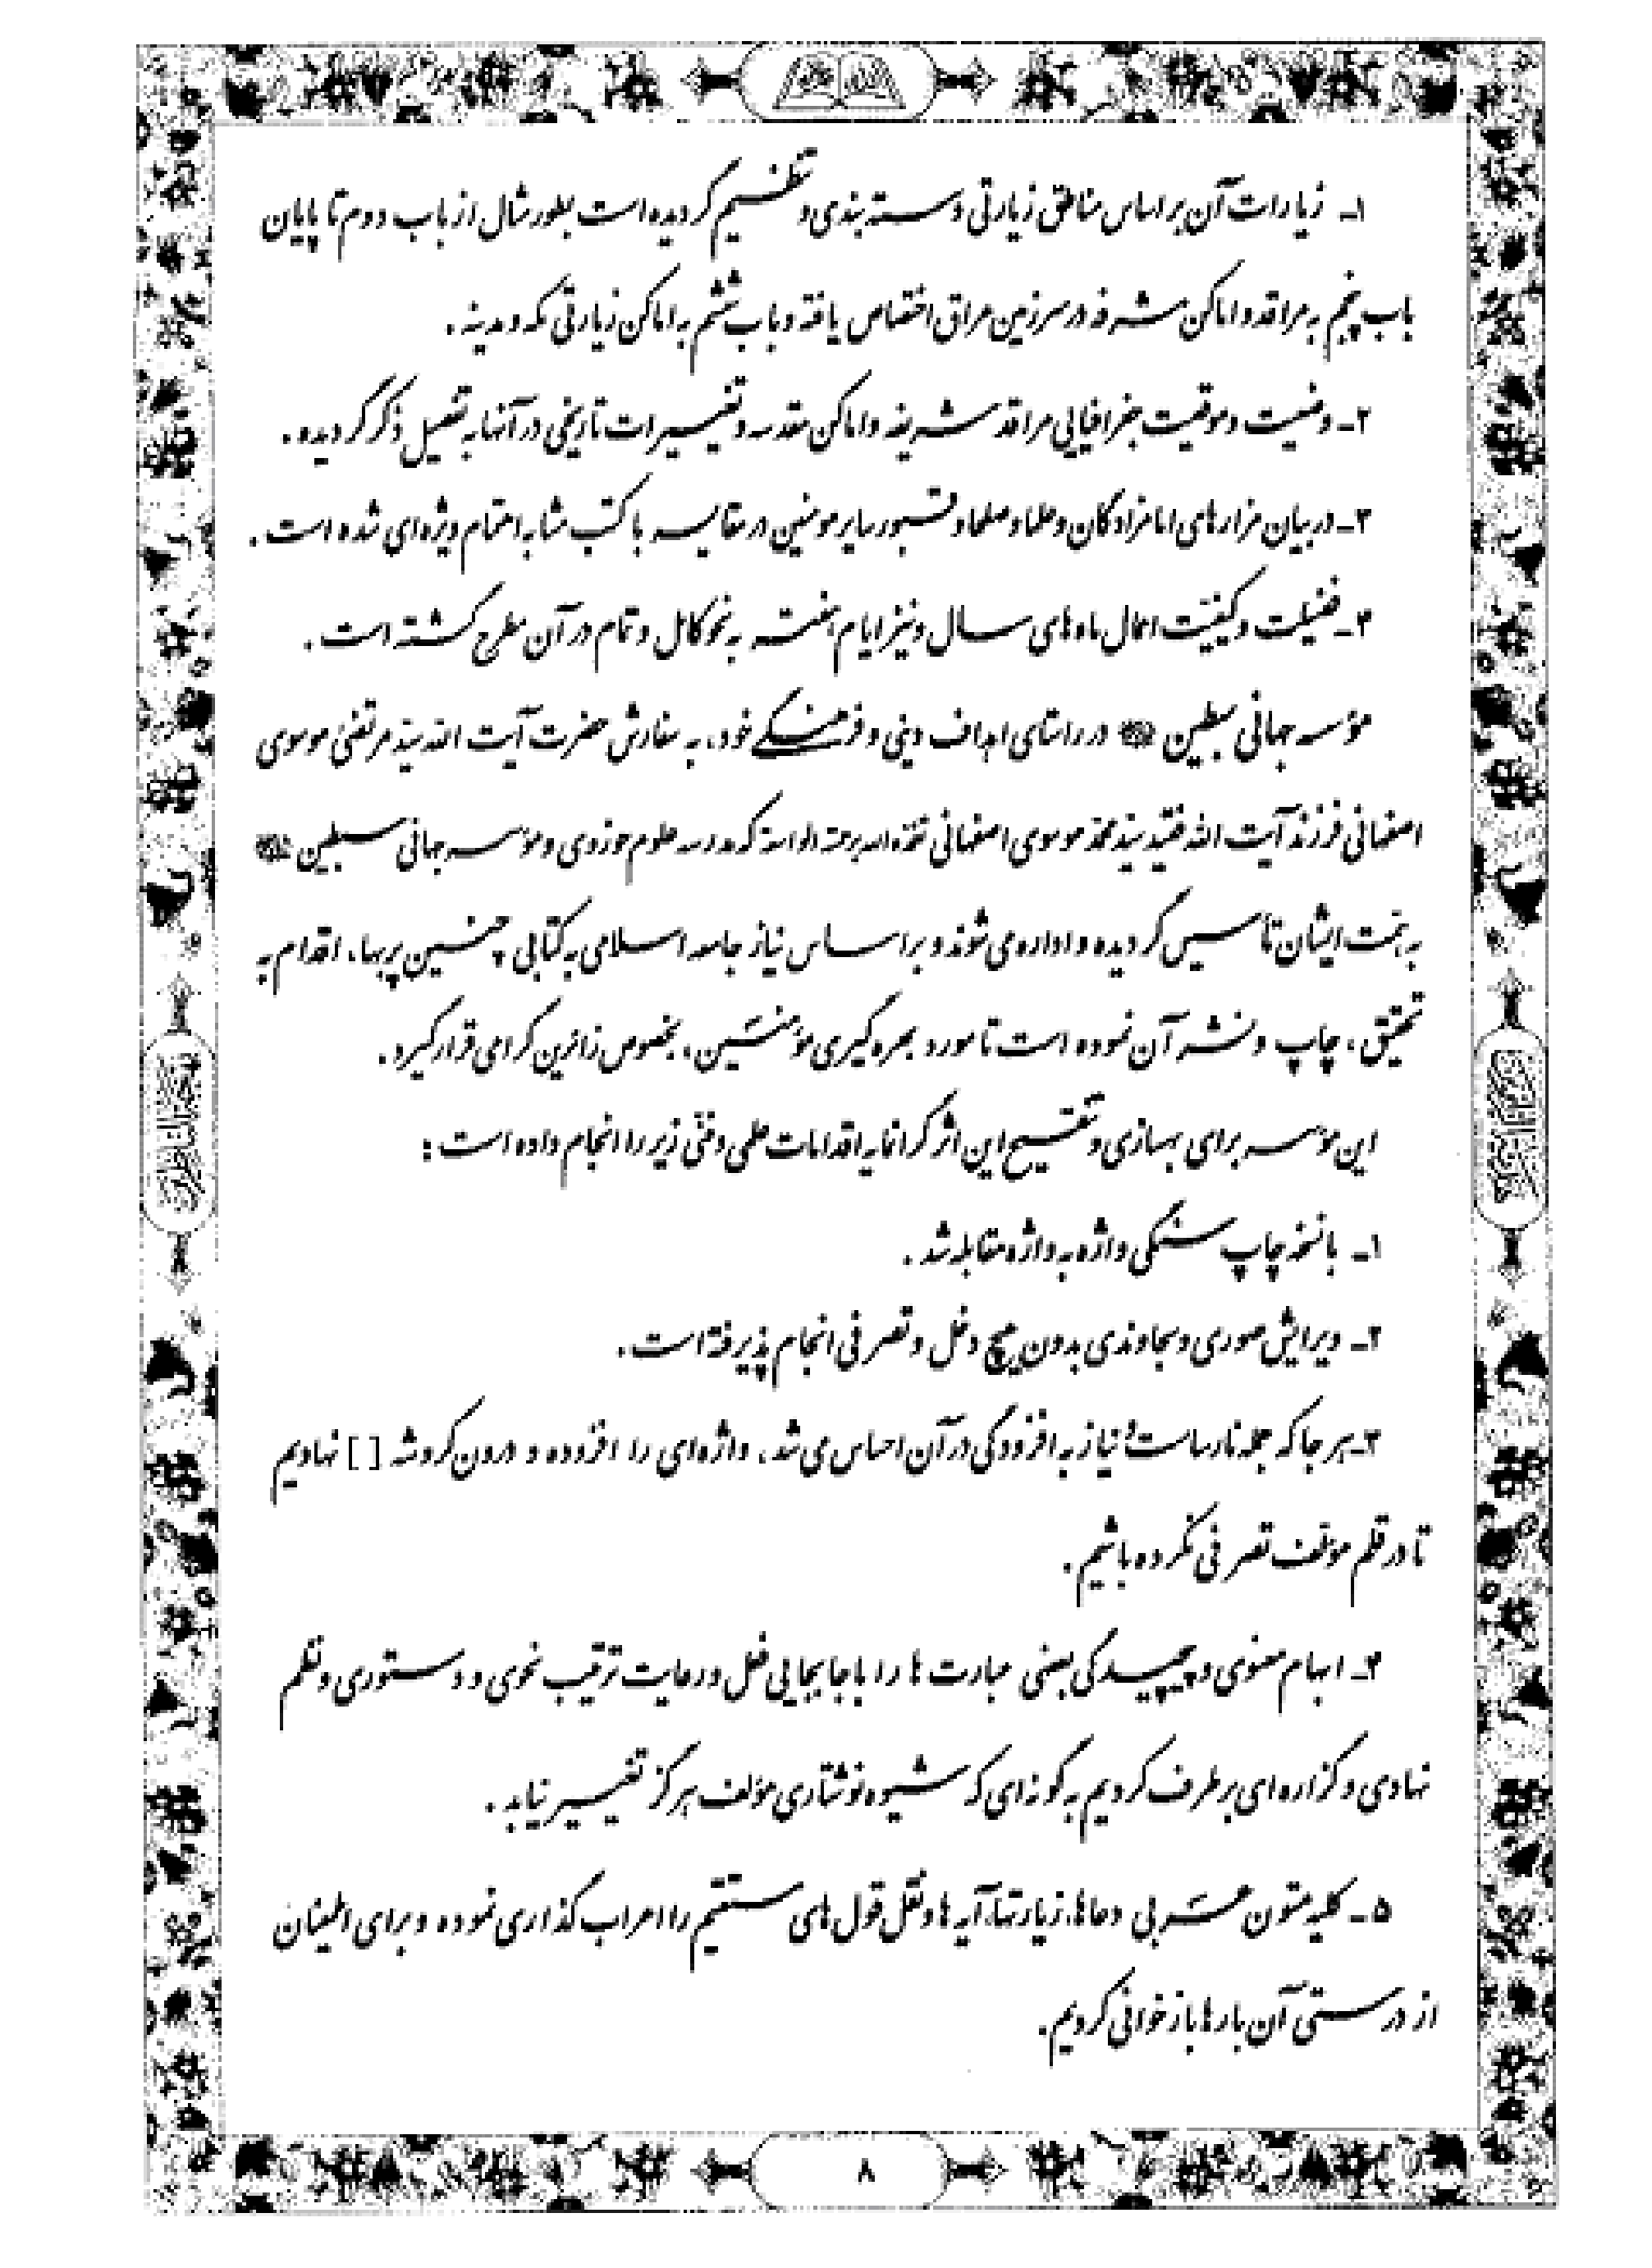 ۱ـ زیارات آن بر اساس مناطق زیارتی دسته بندی و تنظیم گردیده است بطور مثال از باب دوم تا پایان
باب پنجم به مراقد و اماکن مشرفه در سرزمین عراق اختصاص یافته و باب ششم به اماکن زیارتی مکه و مدینه .
۲ـ وضعیت و موقعیت جغرافیایی مراقد شریفه و اماکن مقدسه و تغییرات تاریخی در آنها به تفصیل ذکر گردیده .
۳ـ در بیان مزارهای امامزادگان و علما و صلحا و قبور سایر مومنین در مقایسه با کتب مشابه اهتمام ویژه ای شده است .
۴ـ فضیلت و کیفیّت اعمال ماه های سال و نیز ایام هفته به نحو کامل و تمام در آن مطرح گشته است .
مؤسسه جهانی سبطین در راستای اهداف دینی و فرهنگی خود، به سفارش حضرت آیت الله سیّد مرتضی موسوی
اصفهانی فرزند آیت الله فقید سیّد محمّد موسوی اصفهانی تغمّده الله برحمته الواسعة که مدرسه علوم حوزوی و مؤسسه جهانی سبطین
به همّت ایشان تأسیس گردیده و اداره می شوند و بر اساس نیاز جامعه اسلامی به کتابی چنین پربها، اقدام به
تحقیق ، چاپ و نشر آن نموده است تا مورد بهره گیری مؤمنین، بخصوص زائرین گرامی قرار گیرد .
این مؤسسه برای بهسازی و تنقیح این اثر گرانمایه اقدامات علمی و فنّی زیر را انجام داده است :
۱ـ با نسخه چاپ سنگی واژه به واژه مقابله شد .
۲ـ ویرایش صوری و سجاوندی بدون هیچ دخل و تصرفی انجام پذیرفته است.
۳ـ هر جا که جمله نارساست و نیاز به افزودگی در آن احساس می شد، واژه ای را افزوده و درون کروشه [ ] نهادیم
تا در قلم مؤلف تصرفی نکرده باشیم .
۴ـ ابهام معنوی و پیچیدگی بعضی عبارت ها را با جابجایی فعل و رعایت ترتیب نحوی و دستوری و نظم
نهادی و گزاره ای برطرف کردیم به گونه ای که شیوه نوشتاری مؤلف هرگز تغییر نیابد .
۵ـ کلیه متون عربی دعاها، زیارتها، آیه ها و نقل قول های مستقیم را اعراب گذاری نموده و برای اطمینان
از درستی آن بارها بازخوانی کردیم.
۸